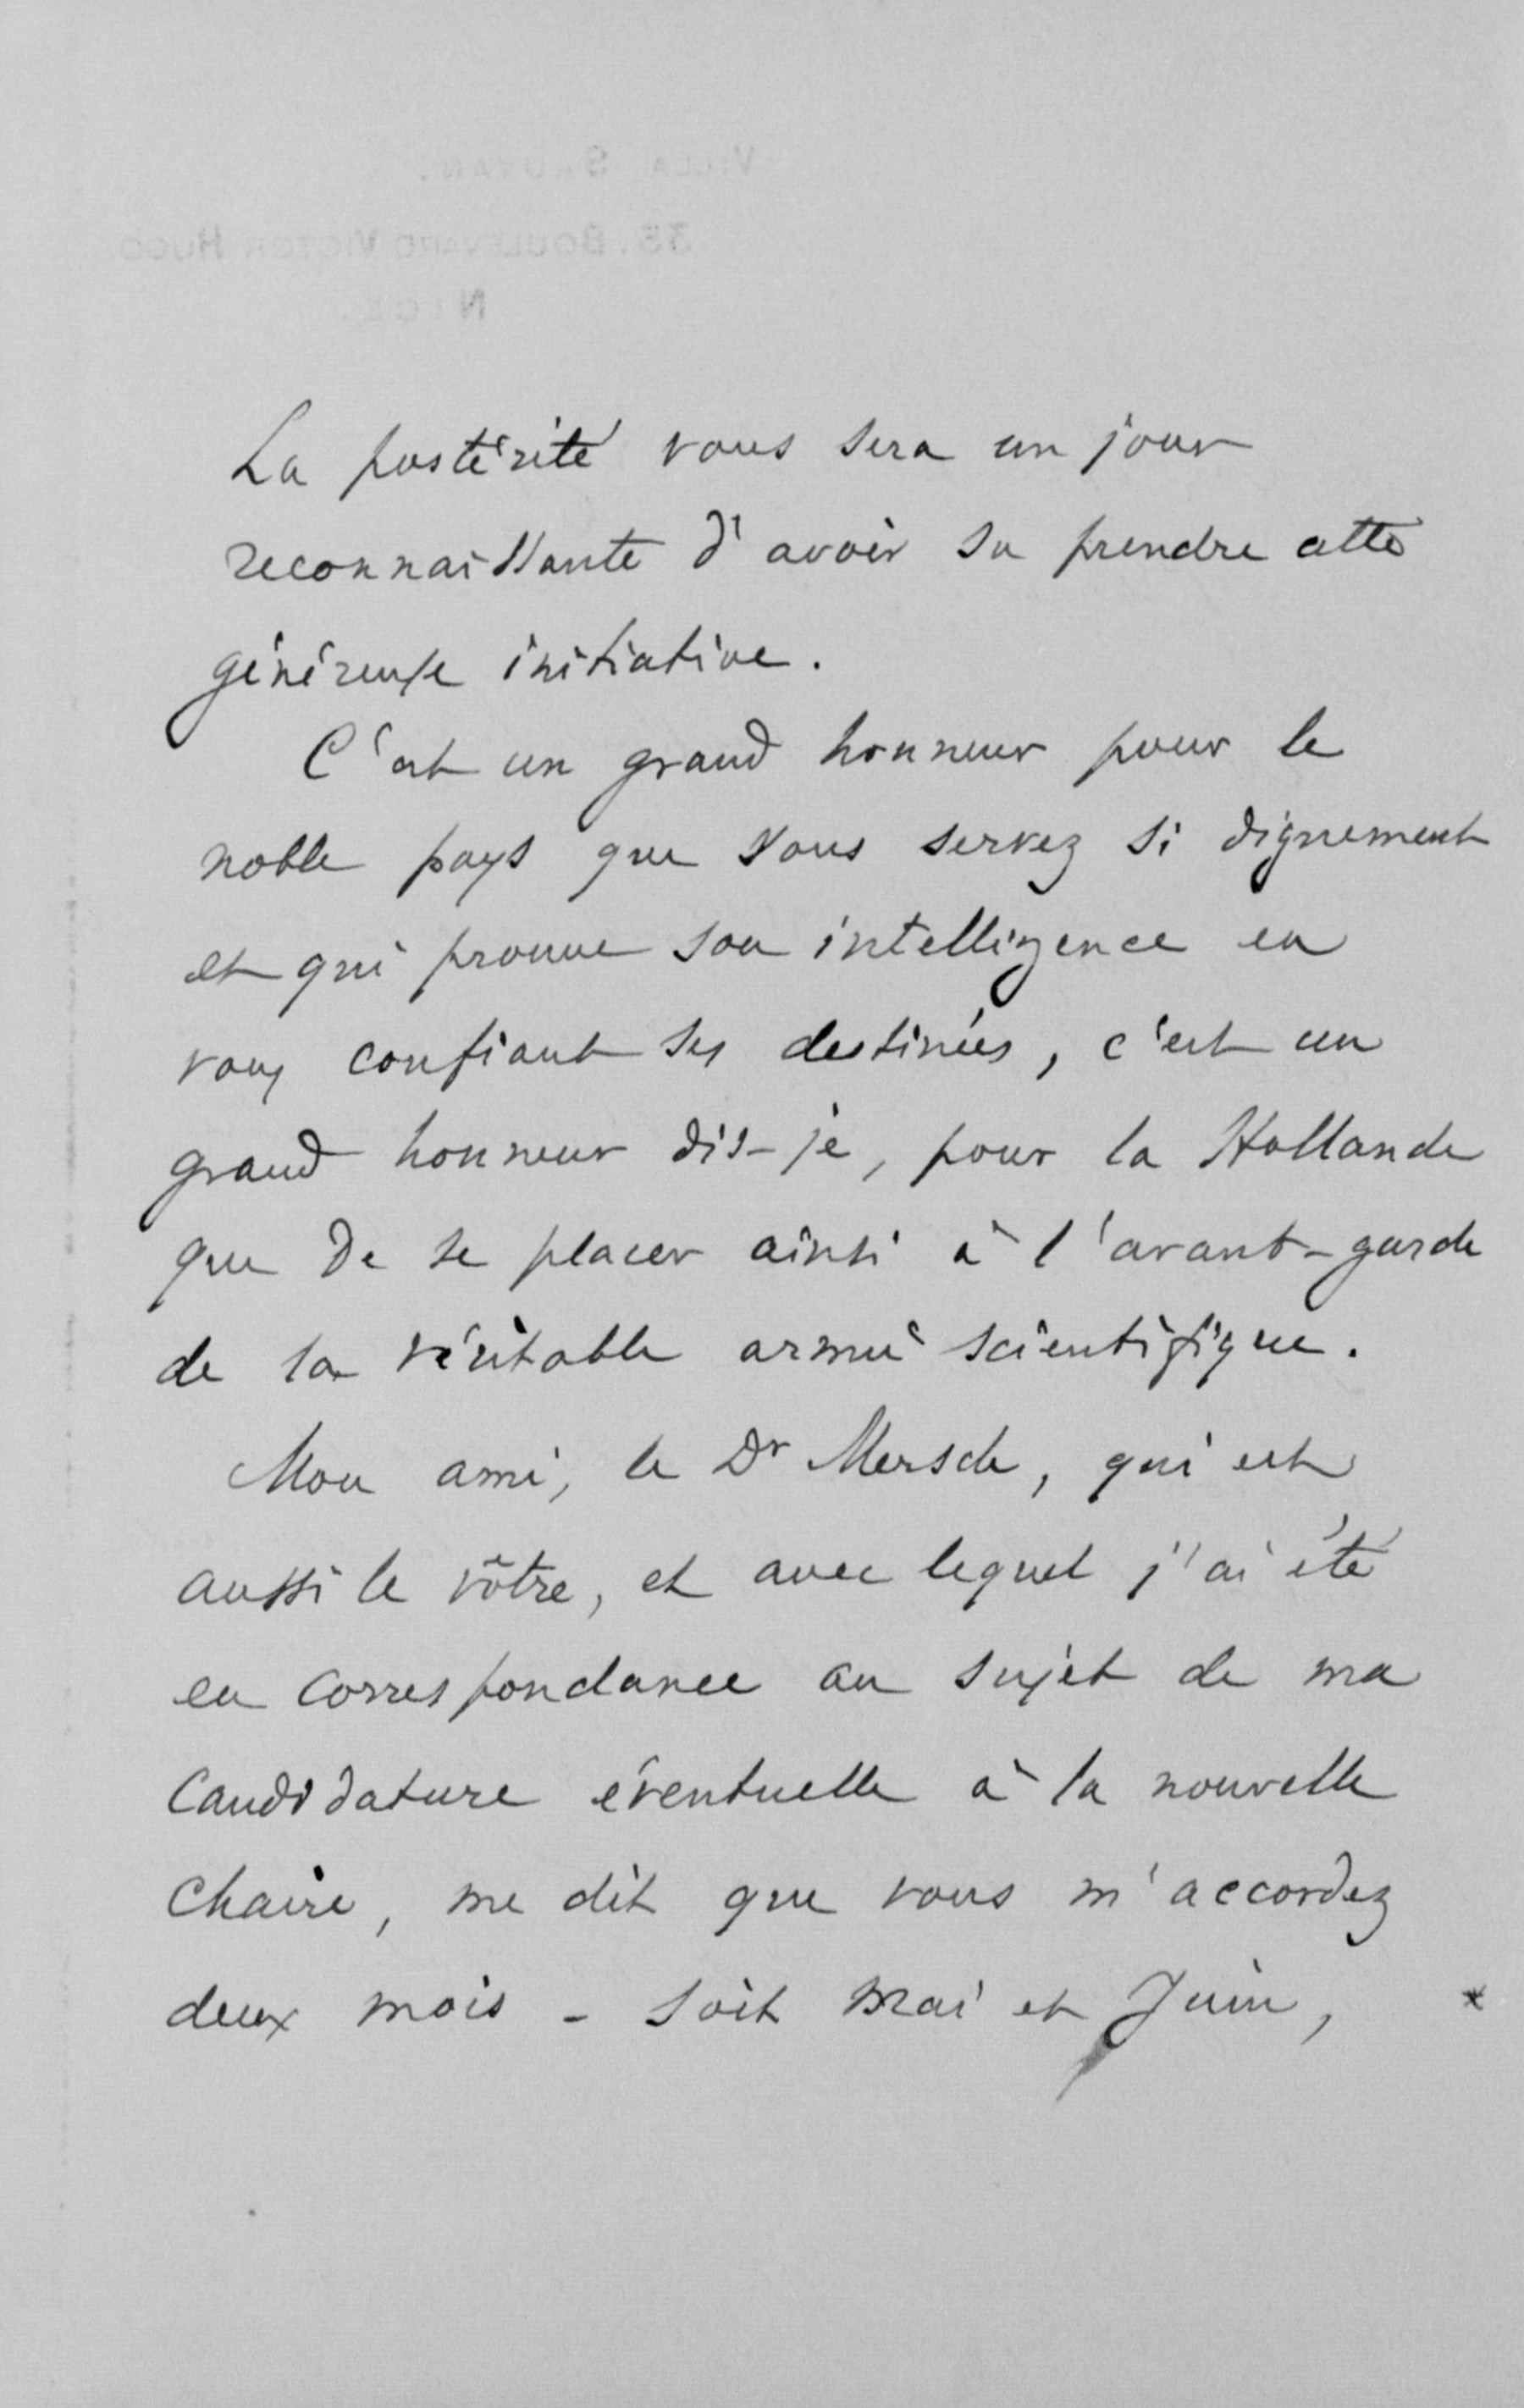 VILLA SAUVAN.
35. BOULEVARD VICTOR HUGO
NICE.
La postérité vous sera un jour
reconnaissante d'avoir su prendre cette
généreuse initiative.
C'est un grand honneur pour le
noble pays que vous servez si dignement
et qui prouve son intelligence en
vous confiant ses destinées, c'est un
grand honneur dis-je, pour la Hollande
que de se placer ainsi à l'avant-garde
de la véritable armée scientifique.
Mon ami, le Dr Mersch, qui est
aussi le vôtre, et avec lequel j'ai été
en correspondance au sujet de ma
Candidature éventuelle à la nouvelle
Chaire, me dit que vous m'accordez
deux mois - soit Mai et Juin,